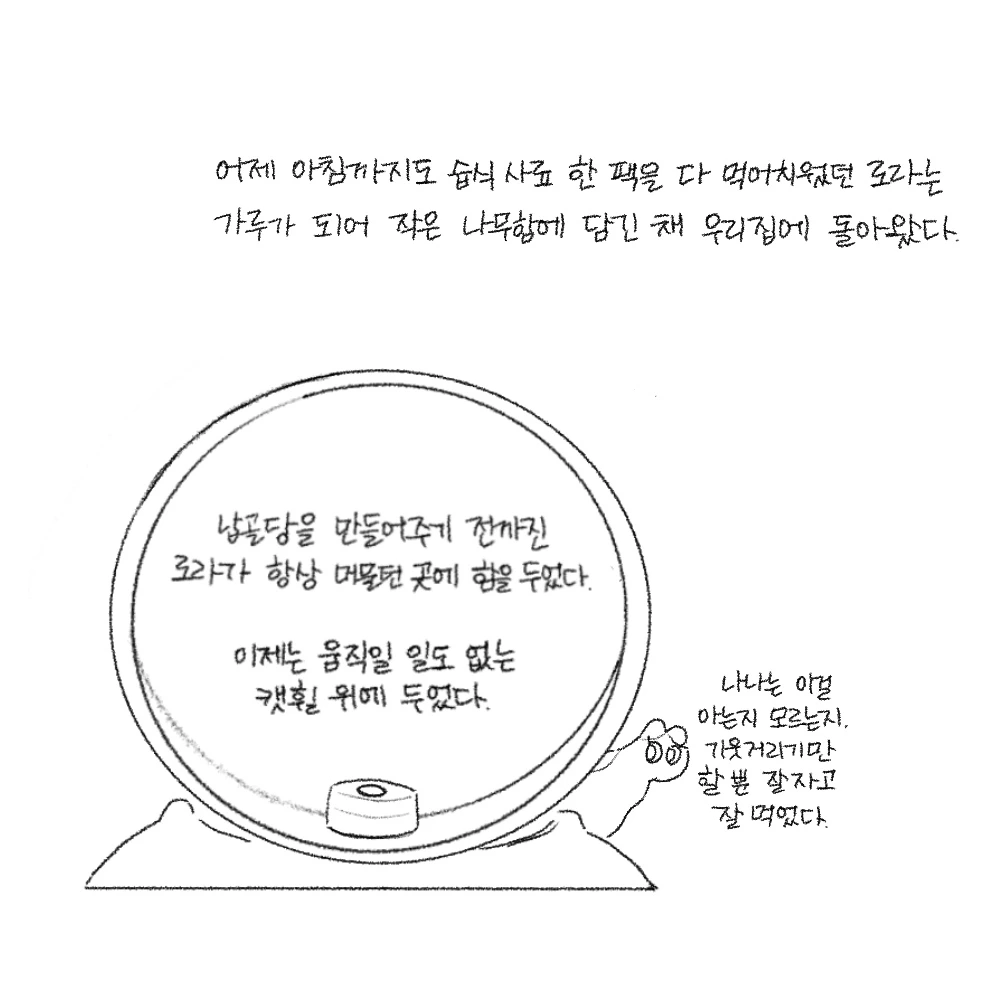 어제 아침까지도 습식 사료 한 팩을 다 먹어치웠던 로라는
가루가 되어 작은 나무함에 담긴 채 우리집에 돌아왔다.
납골당을 만들어주기 전까진
로라가 항상 머물던 곳에 함을 두었다.
이제는 움직일 일도 없는
캣휠 위에 두었다.
나나는 이걸
아는지 모르는지.
기웃거리기만
할 뿐 잘 자고
잘 먹었다.